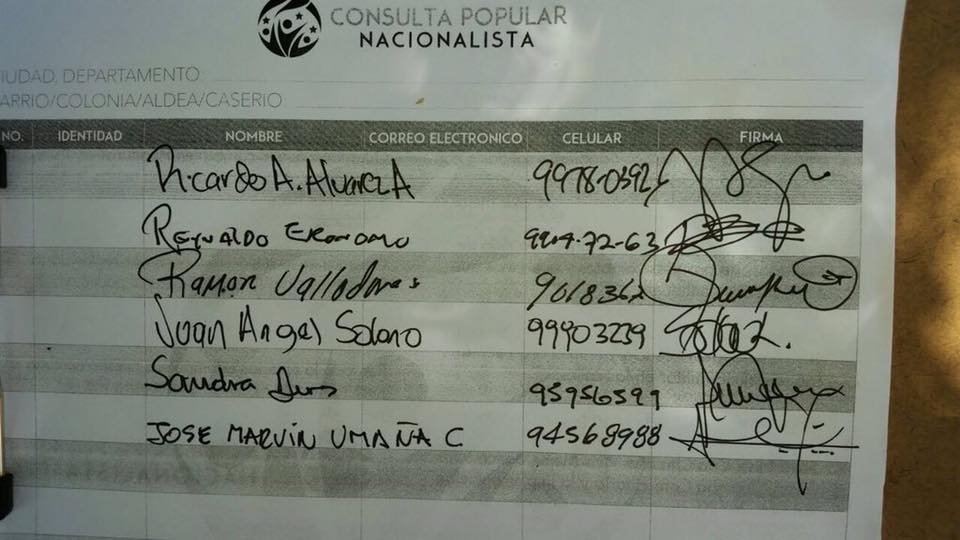 CONSULTA POPULAR
NACIONALISTA
IUDAD, DEPARTAMENTO:
ARRIO/COLONIA/ALDEA/CASERIO:
NO. IDENTIDAD NOMBRE CORREO ELECTRONICO CELULAR FIRMA
Ricardo A. Alvarez A 9978-0392
REYNALDO ECONOMO 9904-72-63
Ramon Valladares 9618362
Juan Angel Solano 99903239
Sandra 95956599
JOSE MARVIN UMAÑA C 94568988